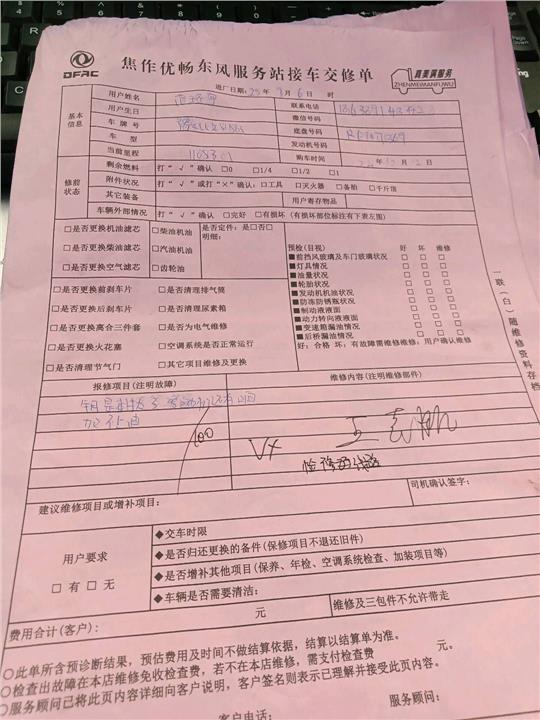 DFAC
焦作优畅东风服务站接车交修单
真美满服务
ZHENMEIMANFUWU
进厂日期: 25年 3月 6日 时
基本信息
用户姓名 联系电话
用户生日 微信号码
车牌号 底盘号码
车型 发动机号码
当前里程 购车时间
修前状态
剩余燃料 打“√”确认 □0 □1/4 □1/2 □1
附件状况 打“√”或打“×”确认: □工具 □灭火器 □备胎 □千斤顶
其它装备 用户寄存物品
车辆外部情况 打“√”确认 □完好 □有损坏 (有损坏部位标注有下表左图)
□是否更换机油滤芯 □柴油机油 是否定件: 是□否□
□是否更换柴油滤芯 □汽油机油 明细:
□是否更换空气滤芯 □齿轮油
□是否更换前刹车片 □是否清理排气筒
□是否更换后刹车片 □是否清理尿素箱
□是否更换离合三件套 □是否为电气维修
□是否更换火花塞 □空调系统是否正常运行
□是否清理节气门 □其它项目维修及更换
预检(目视) 好 坏 维修
■前挡风玻璃及车门玻璃状况 □ □ □
■灯具情况 □ □ □
■油量状况 □ □ □
■轮胎状况 □ □ □
■发动机机油状况 □ □ □
■防冻防锈瓶状况 □ □ □
■制动液液面 □ □ □
■动力转向液液面 □ □ □
■变速箱漏油情况 □ □ □
■后桥漏油情况 □ □ □
好: 合格 坏: 有故障需维修维修: 用户确认维修
一联(白)随维修资料存档
报修项目(注明故障) 维修内容(注明维修部件)
100
建议维修项目或增补项目: 司机确认签字:
用户要求
□有 □无
◆交车时限
◆是否归还更换的备件(保修项目不退还旧件)
◆是否增补其他项目(保养、年检、空调系统检查、加装项目等)
◆车辆是否需要清洁:
费用合计(客户): 元 维修及三包件不允许带走
○此单所含预诊断结果, 预估费用及时间不做结算依据, 结算以结算单为准。
○检查出故障在本店维修免收检查费, 若不在本店维修, 需支付检查费 元。
○服务顾问已将此页内容详细向客户说明, 客户签名则表示已理解并接受此页内容。
服务顾问:
客户电话: